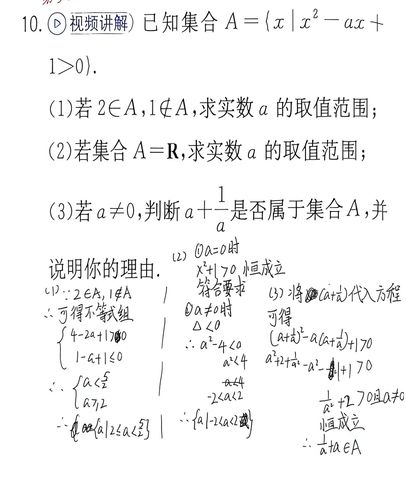 10. 视频讲解) 已知集合 A={x|x²-ax+
1>0}.
(1)若 2∈A,1∉A,求实数 a 的取值范围;
(2)若集合 A=R,求实数 a 的取值范围;
(3)若 a≠0,判断 a+1/a 是否属于集合 A,并
说明你的理由.
(1)∵2∈A, 1∉A
∴可得不等式组
{4-2a+1>0
1-a+1≤0
∴{a<5/2
a≥2
∴{a|2≤a<5/2}
(2) ①a=0时
x²+1>0 恒成立
符合要求
②a≠0时
△<0
∴a²-4<0
a²<4
a<4
-2<a<2
∴{a|-2<a<2}
(3)将(a+1/a)代入方程
可得
(a+1/a)²-a(a+1/a)+1>0
a²+2+1/a²-a²-1+1>0
1/a²+2>0且a≠0
恒成立
∴1/a+a∈A